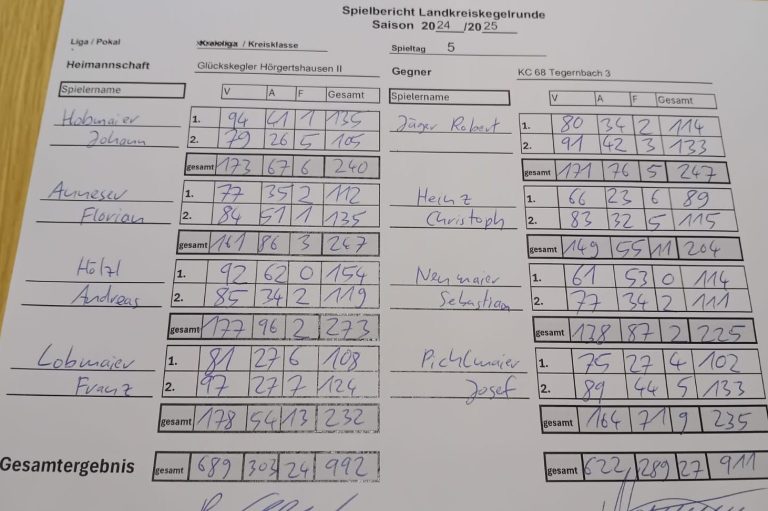 Spielbericht Landkreiskegelrunde
Saison 2024 /2025
Liga / Pokal Kreisliga / Kreisklasse Spieltag 5
Heimannschaft Glückskegler Hörgertshausen II Gegner KC 68 Tegernbach 3
Spielername V A F Gesamt Spielername V A F Gesamt
Hobmaier 1. 94 41 1 135 Jäger Robert 1. 80 34 2 114
Johann 2. 79 26 5 105 2. 91 42 3 133
gesamt 173 67 6 240 gesamt 171 76 5 247
Anneser 1. 77 35 2 112 Heinz 1. 66 23 6 89
Florian 2. 84 51 1 135 Christoph 2. 83 32 5 115
gesamt 161 86 3 247 gesamt 149 55 11 204
Hölzl 1. 92 62 0 154 Neumaier 1. 61 53 0 114
Andreas 2. 85 34 2 119 Sebastian 2. 77 34 2 111
gesamt 177 96 2 273 gesamt 138 87 2 225
Lobmaier 1. 81 27 6 108 Pichlmaier 1. 75 27 4 102
Franz 2. 97 27 7 124 Josef 2. 89 44 5 133
gesamt 178 54 13 232 gesamt 164 71 9 235
Gesamtergebnis gesamt 689 303 24 992 gesamt 622 289 27 911